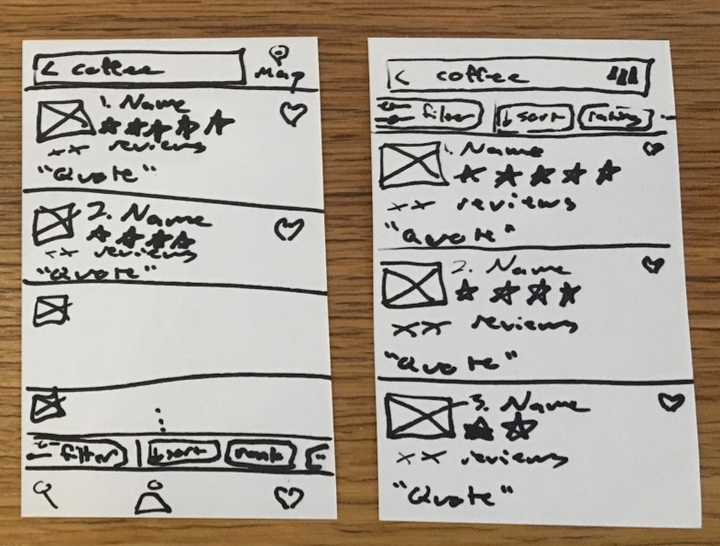 < coffee
Map
1. Name
xx reviews
"Quote"
2. Name
xx reviews
"Quote"
filter
sort
< coffee
filter
sort
rating
1. Name
xx reviews
"Quote"
2. Name
xx reviews
"Quote"
3. Name
xx reviews
"Quote"